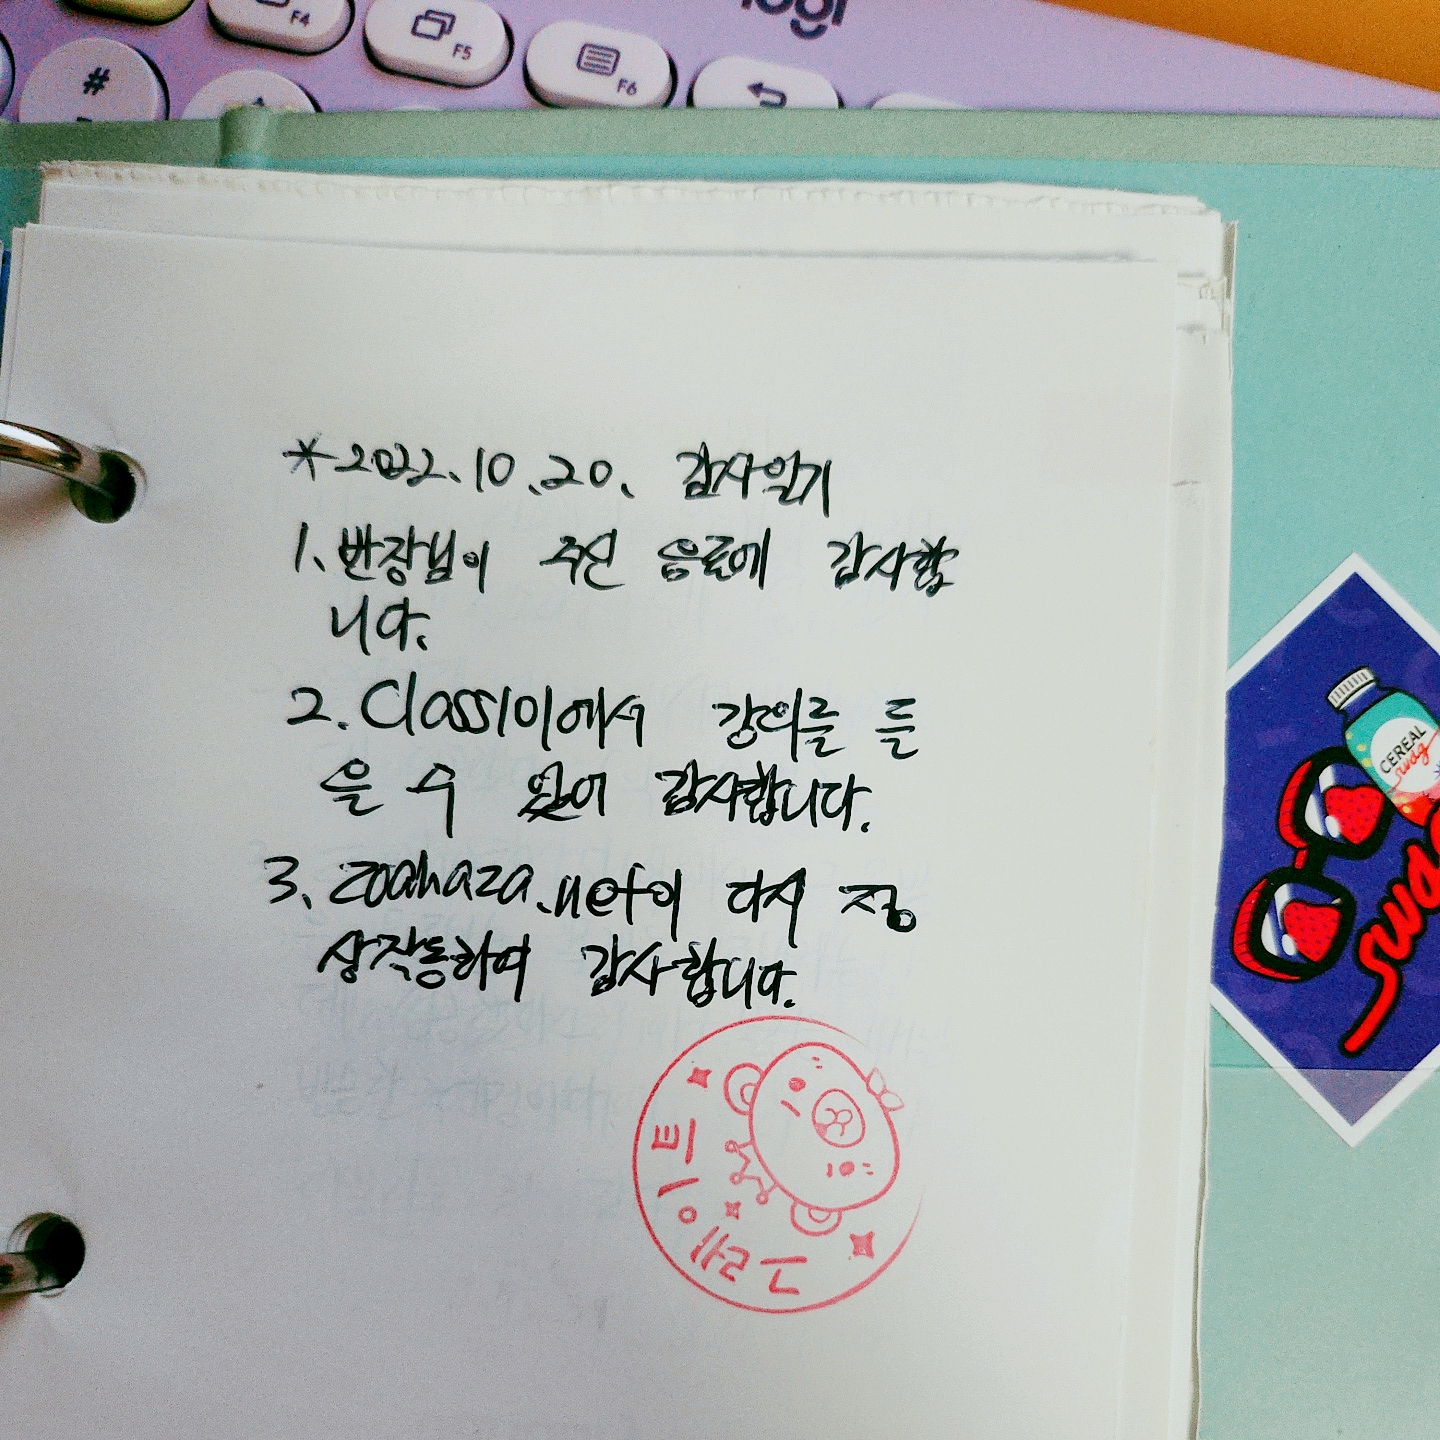 logi
F4
F5
F6
#
*2022.10.20. 감사일기
1. 반장님이 주신 음료에 감사합
니다.
2. Class101에서 강의를 들
을 수 있어 감사합니다.
3. zoahaza.net이 다시 정
상작동하여 감사합니다.
그레이트
CEREAL
swag
swag